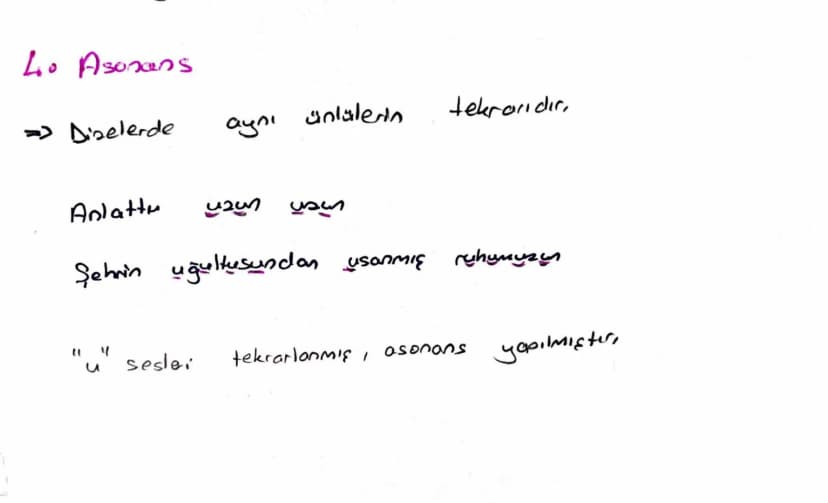 4. Asonans
⇒ Dizelerde aynı ünlülerin tekrarıdır.
Anlattı uzun uzun
Şehrin uğultusundan usanmış ruhumuzun
"u" sesleri tekrarlanmış, asonans yapılmıştır.